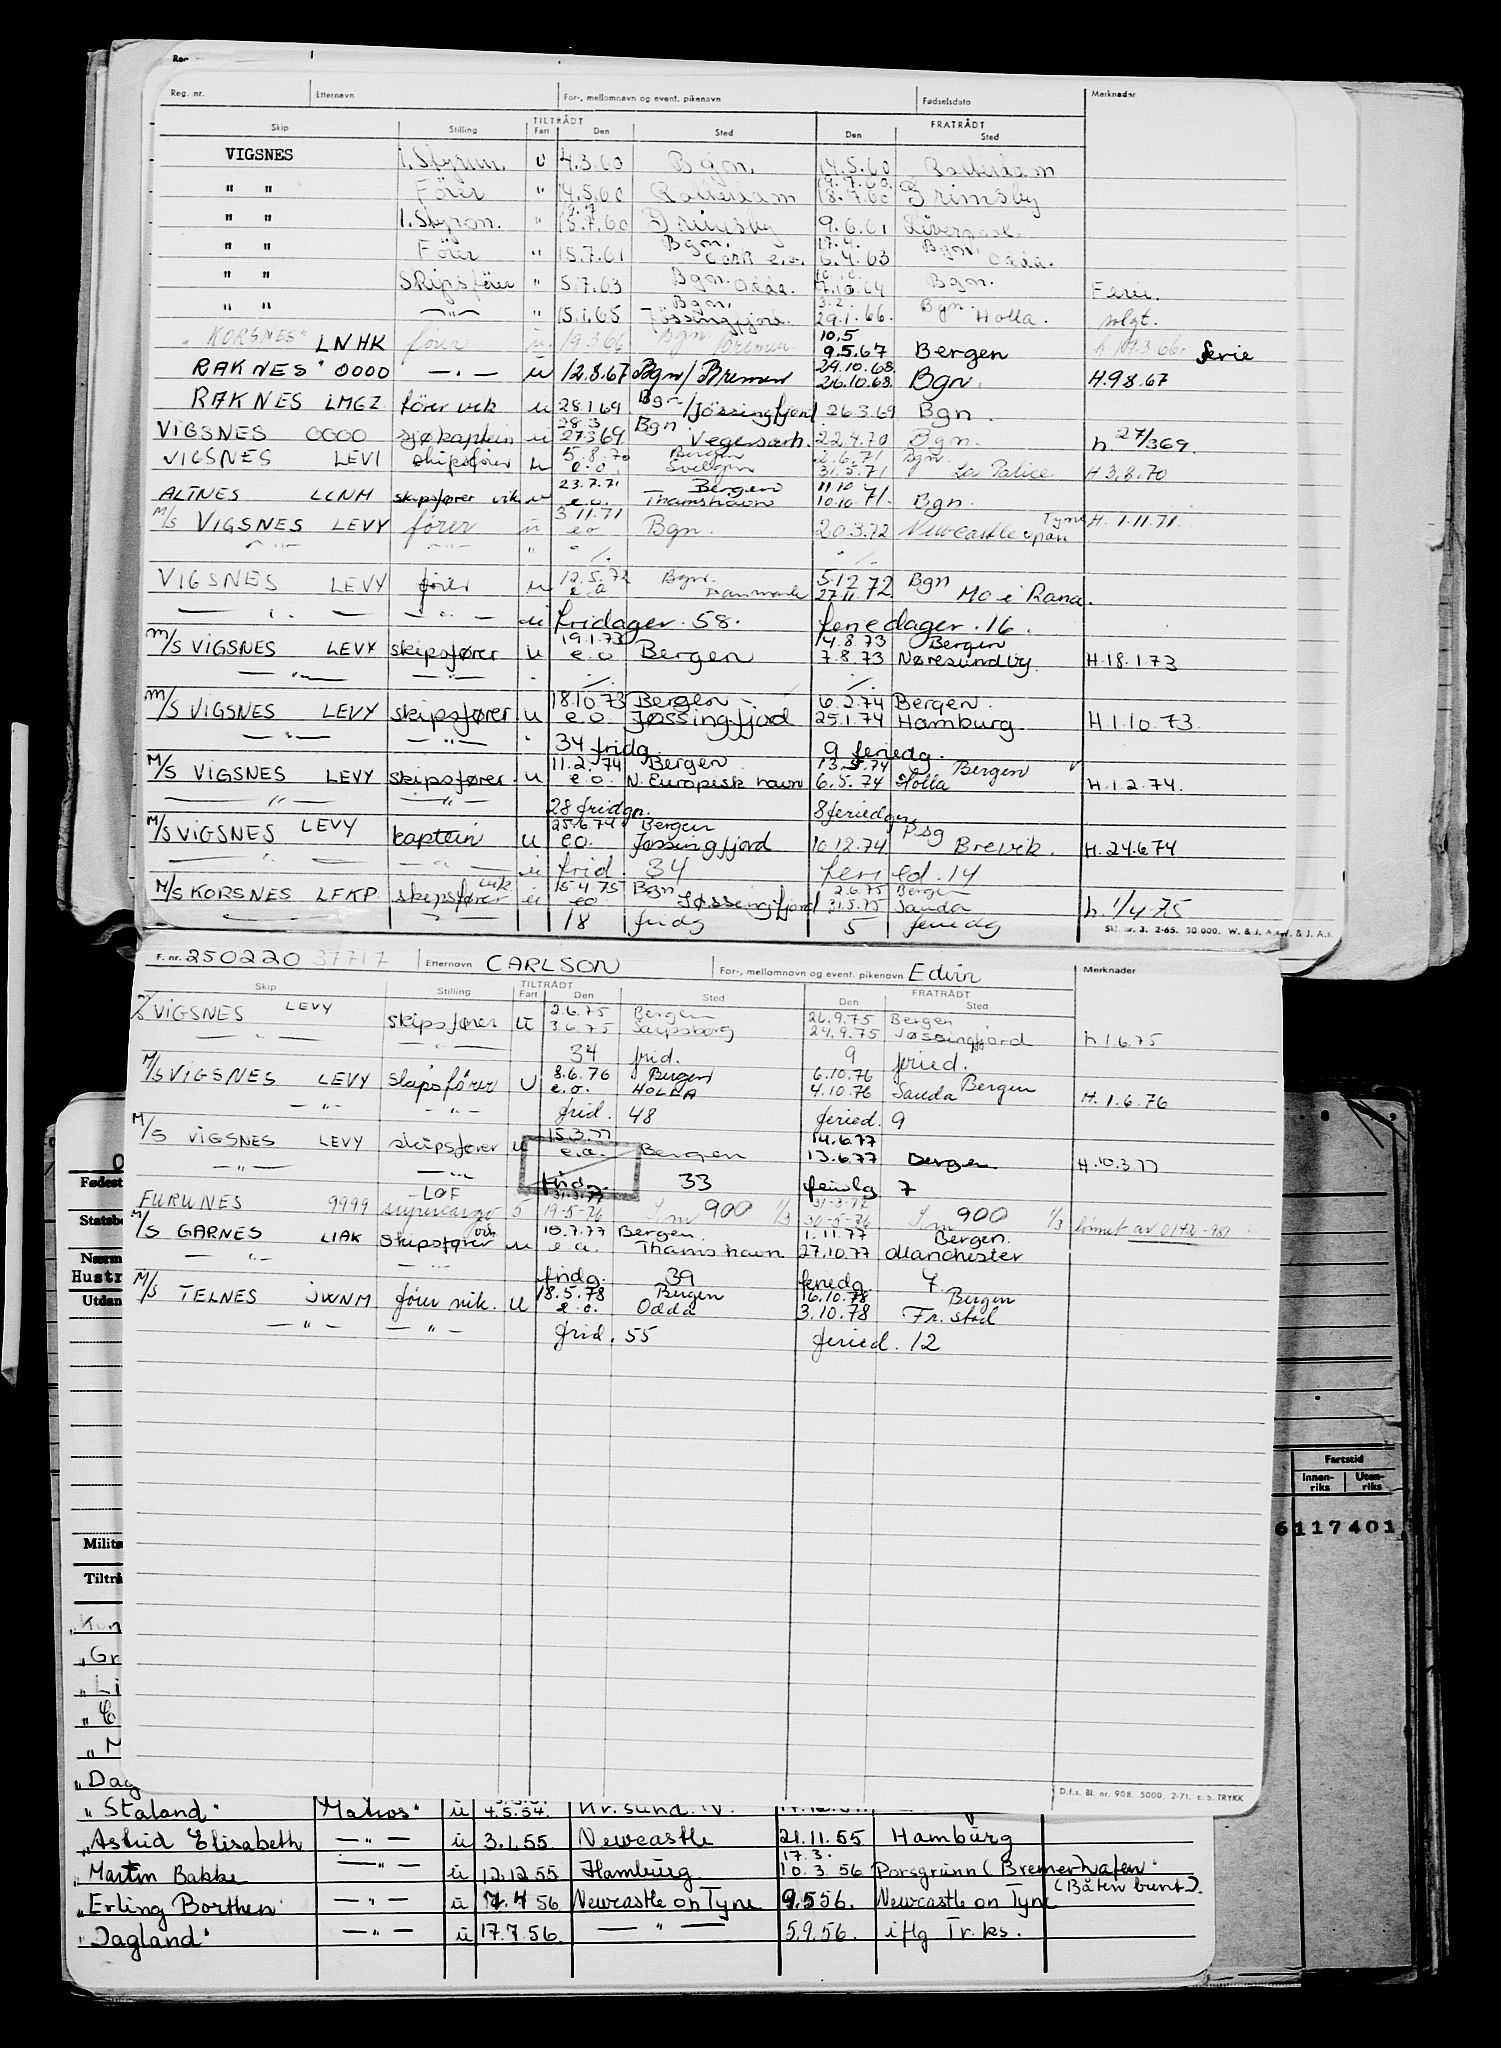 Reg. nr. Etternavn For-, mellomnavn og event. pikenavn Fødselsdato Merknader
TILTRÅDT FRATRÅDT
Skip Stilling Fart Den Sted Den Sted
VIGSNES 1. Styrm. u 4.3.60 Bgn. 14.5.60 Rotterdam
" " Fører " 14.5.60 Rotterdam 18.7.60 Grimsby
" " 1. Styrm. " 18.7.60 Grimsby 9.6.61 Liverpool.
" " Fører " 15.7.61 Bgn. Cork e.o. 17.4. 6.4.63 Bgn. Odda.
" " Skipsfører " 5.7.63 Bgn. Odda. 10.10. 7.10.64 Bgn. Ferie.
" " —"— " 15.1.65 Bgn. Jössingfjord. 3.2. 29.1.66. Bgn. Holla. solgt.
"KORSNES" LNHK fører u. 19.3.66 Bgn. Bremen. 10.5 9.5.67 Bergen h. 19.3.66. ferie
RAKNES" 0000 —"— u 12.8.67 Bgn/Bremen 29.10.68. 26.10.68. Bgn. H.9.8.67
RAKNES LMGZ fører vik u 28.1.69 Bgn/Jössingfjord 26.3.69 Bgn.
VIGSNES 0000 sjøkaptein u 28.3 27.3.69 Bgn. Vegesack. 22.4.70 Bgn. h. 27/3 69.
VIGSNES LEVI skipsfører u 5.8.70 e.o. Bergen Svelgen 2.6.71 31.5.71 Bgn. La Palice H 3.8.70
ALTNES LCNH skipsfører vik u 23.7.71 e.o. Bergen Thamshavn 11.10 10.10.71. Bgn.
M/S VIGSNES LEVY fører u 3.11.71 eo Bgn. 20.3.72 Newcastle upon Tyne H. 1.11.71.
—"— —"— " ./. ./.
VIGSNES LEVY fører u 12.5.72 e.o Bgn. Danmark 5.12.72 27.11.72. Bgn Mo i Rana.
—"— —"— u fridager. 58. feriedager. 16.
M/S VIGSNES LEVY skipsfører u 19.1.73 e.o Bergen 14.8.73 7.8.73 Bergen Nøresundby H.18.1.73
—"— —"— ./. ./.
M/S VIGSNES LEVY skipsfører u 18.10.73 e.o. Bergen Jøssingfjord 6.2.74 25.1.74 Bergen Hamburg H.1.10.73.
—"— —"— " 34 fridg. 9 feriedg.
M/S VIGSNES LEVY skipsfører. u 11.2.74 e.o. Bergen N. Europeisk havn 13.5.74 6.5.74 Bergen Holla H.1.2.74.
—"— —"— 28 fridgn. 8 feriedgn.
M/S VIGSNES LEVY kaptein u 25.6.74 eo. Bergen Jøssingfjord 10.12.74 Psg Brevik. H.24.6.74
—"— —"— u frid. 34 feried. 14
M/S KORSNES LFKP skipsfører vik u 15.4.75 eo Bgn Jøssingfjord 2.6.75 31.5.75 Bergen Sauda h. 1/4.75
—"— —"— 18 fridg 5 feriedg
Skj. nr. 3. 2-65. 30 000. W. & J. A.s.
F. nr. 250220 37717 Etternavn CARLSON For-, mellomnavn og event. pikenavn Edvin Merknader
TILTRÅDT FRATRÅDT
Skip Stilling Fart Den Sted Den Sted
VIGSNES LEVY skipsfører u 2.6.75 3.6.75 Bergen Sarpsborg 26.9.75 24.9.75 Bergen Jøssingfjord h.1.6.75
—"— —"— 34 frid. 9 feried.
M/S VIGSNES LEVY skipsfører U 8.6.76 e.o. Bergen HOLLA 6.10.76 4.10.76 Bergen Sauda H. 1.6.76
—"— —"— frid. 48 feried. 9
M/S VIGSNES LEVY skipsfører u 15.3.77 e.o. Bergen 14.6.77 13.6.77 Bergen H.10.3.77
—"— —"— fridg. 33 feriedg 7
FURUNES 9999 LOF supercargo 5 31-3-77 19-5-76 Im 900 1/3 31-3-77 30-5-76 Im 900 1/3 lønnet av 0142-981
M/S GARNES LIAK skipsfører vik u 18.7.77 e.o. Bergen. Thamshavn 1.11.77 27.10.77 Bergen. Manchester
—"— —"— fridg. 39 feriedg 7
M/S TELNES JWNM fører vik. u 18.5.78 e.o. Bergen Odda 16.10.78 3.10.78 Bergen Fr.stad
—"— —"— frid. 55 feried. 12
Fartstid
Innen-riks Uten-riks
6117401
D.f.s. Bl. nr. 908. 5000. 2-71. E. S. TRYKK
Fødest
Statsbo
Nærm
Hustr
Utdan
Milita
Tiltrå
"Gr
"Li
"Dag
"Staland" Matros u 4.5.54. Kr.sund. N.
"Astrid Elisabeth —"— u 3.1.55 Newcastle 21.11.55 Hamburg
"Martin Bakke —"— u 12.12.55 Hamburg 17.3. 10.3.56 Porsgrunn (Bremerhafen"
"Erling Borthen" —"— u 17.4 56 Newcastle on Tyne 9.5 56. Newcastle on Tyne (Båten brent).
"Dagland" —"— u 17.7.56. —"— 5.9.56. iflg Tr.ks.